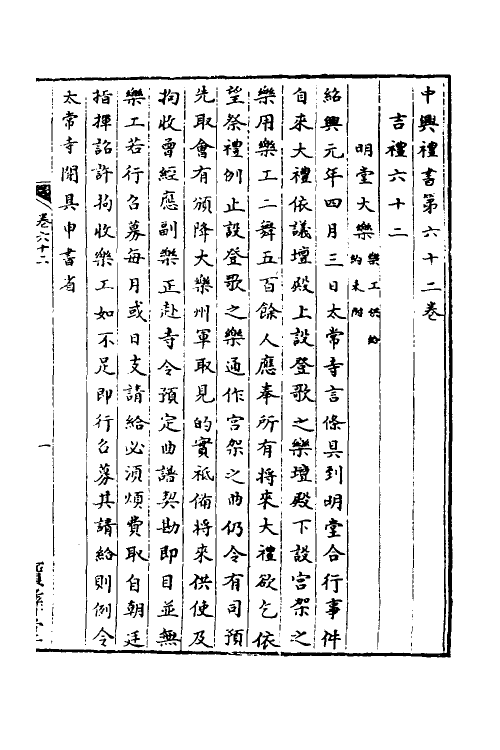 中興禮書第六十二卷
吉禮六十二
明堂大樂樂工供給約束附
紹興元年四月三日太常寺言條具到明堂合行事件
自來大禮依議壇殿上設登歌之樂壇殿下設宮架之
樂用樂工二舞五百餘人應奉所有將來大禮欲乞依
望祭禮例止設登歌之樂通作宮架之曲仍令有司預
先取會有頒降大樂州軍取見的實祗備將來供使及
拘收曾經應副樂正赴寺令預定曲譜契勘即目並無
樂工若行召募每月或日支請給必須煩費取自朝廷
指揮詔許拘收樂工如不足即行召募其請給則例令
太常寺開具申書省
卷六十二
一